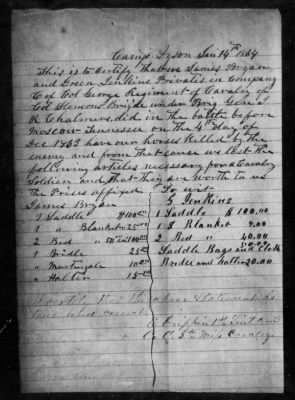 Camp Tyson Jan 14th 1864
This is to Certify that we James Bryan
and Green Jenkins Privates in Company
C of Col George Regiment of Cavalry of
Col Slemons Brigade under Brig Genl
R Chalmers, did in the battle before
Moscow Tennessee on the 4th day of
Dec 1863 have our horses Killed by the
enemy and from that cause we lost the
following articles necessary for a Cavalry
Soldier and that they are worth to us
the Prices affixed To wit
James Bryan
1 Saddle $100.00
1 " Blanket " 25.00
2 Bed " 50 100.00
1 Bridle 25.00
" Martingale 10.00
" Halter 15.00
G Jenkins
1 Saddle $ 100.00
1 S Blanket
2 Bed "
Saddle Bags and Cloth
Bridle and Halter 20.00
I certify that the above Statement is
true
1st Lieut
Co C 5th Miss Cavalry